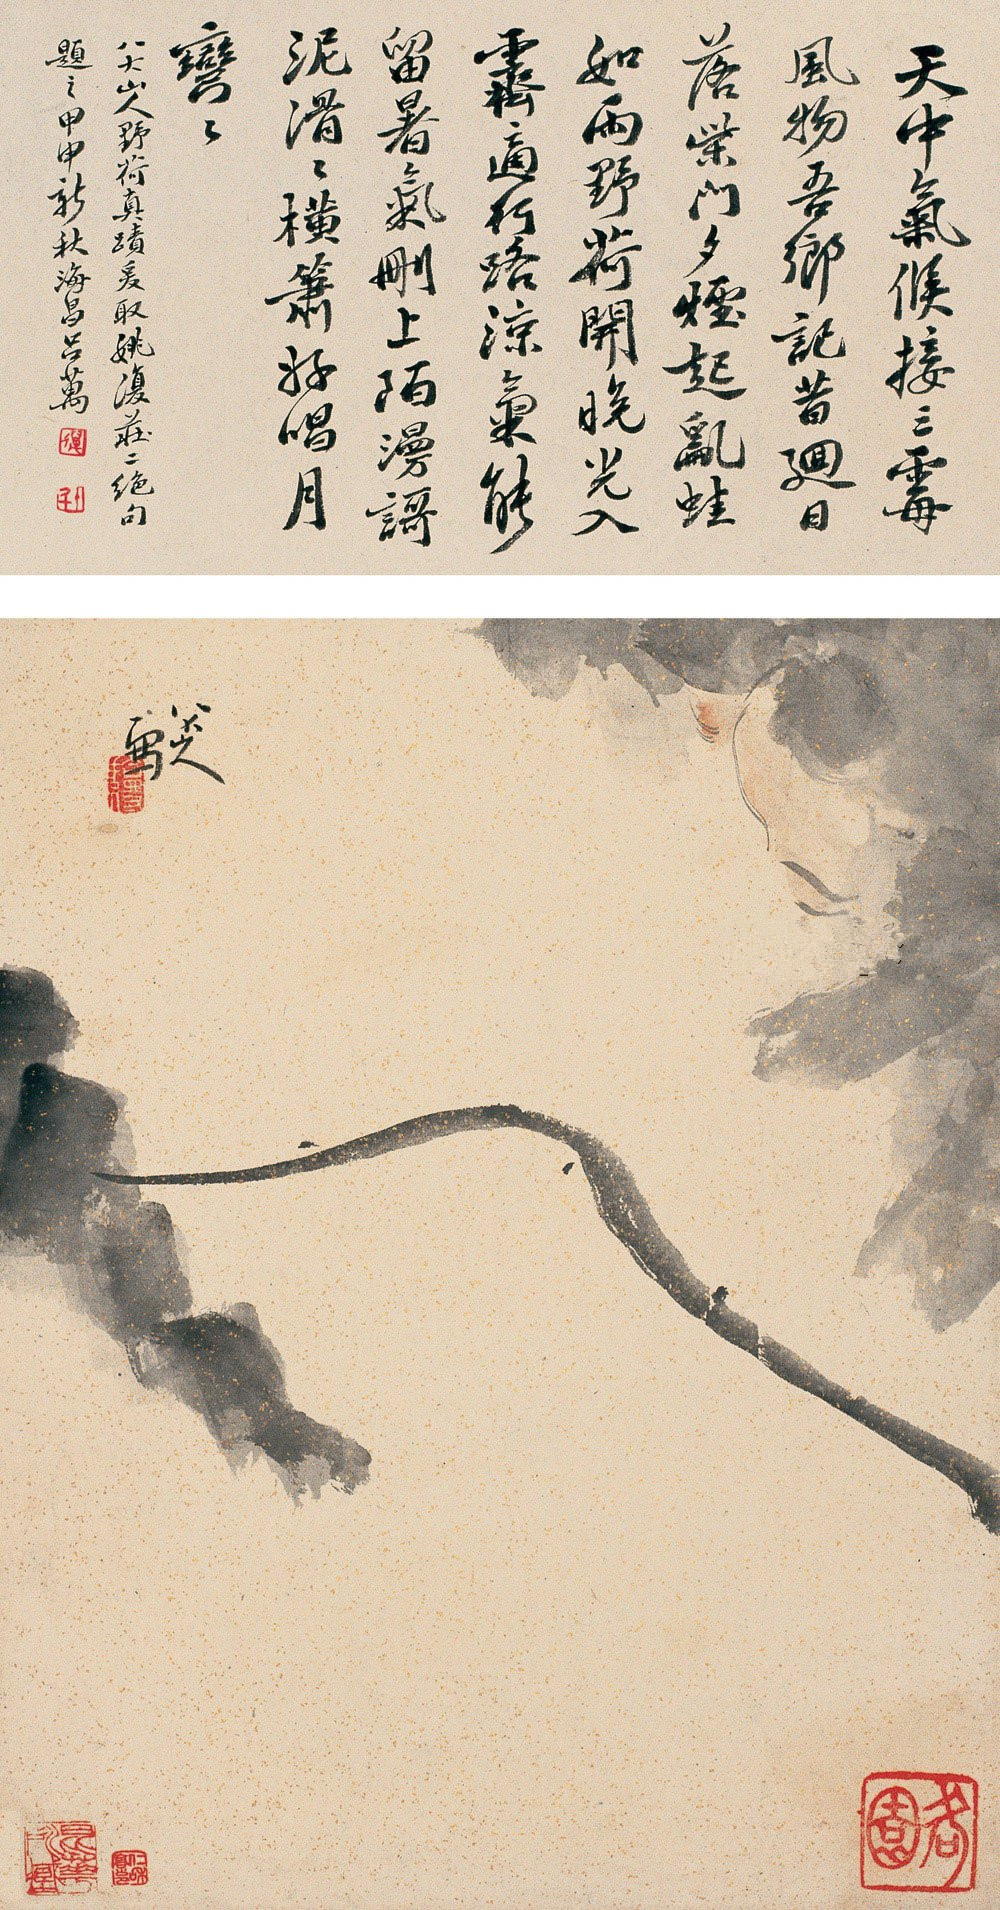 天中氣候接三霉
風物吾鄉記昔迴日
落柴門夕煙起亂蛙
如雨野荷開晚光入
霽適行路涼氣能
留暑氣刪上陌漫謌
泥滑〻橫簫好唱月
彎〻
八大山人野荷真蹟爰取姚復莊二絕句
題之甲申新秋海昌呂萬
八大山人寫